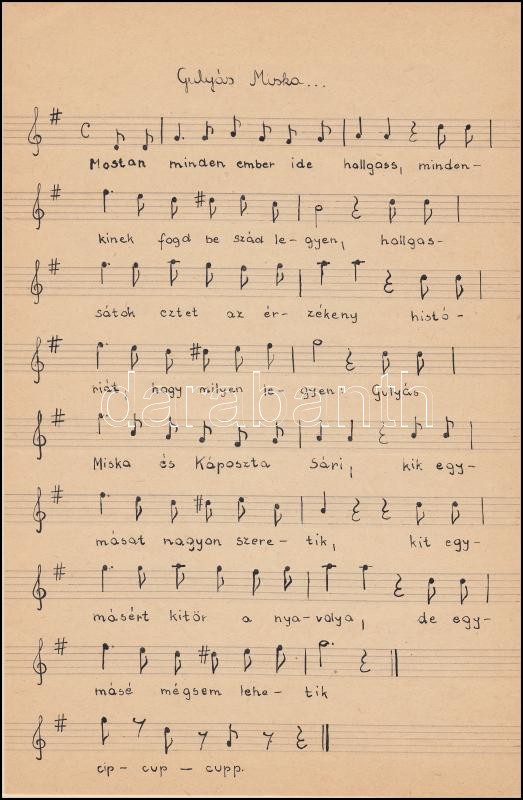 Gulyás Miska...
C
Mostan minden ember ide hallgass, minden-
kinek fogd be szád le-gyen, hallgas-
sátok eztet az ér-zékeny histó-
riát, hogy milyen le-gyen: Gulyás
Miska és Káposzta Sári, kik egy-
mását nagyon szere-tik, kit egy-
másért kitör a nya-valya, de egy-
másé mégsem lehe-tik
cip-cup-cupp.
darabanth